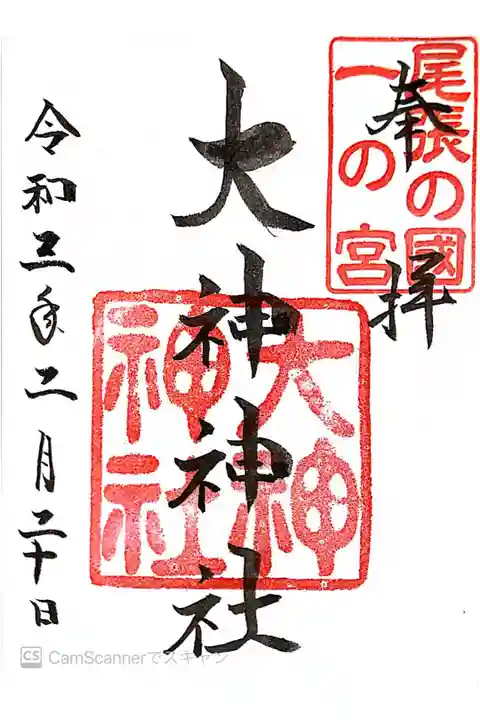 尾張の國
一の宮
奉拝
大神神社
大神
神社
令和三年二月二十日
CS CamScannerでスキャン